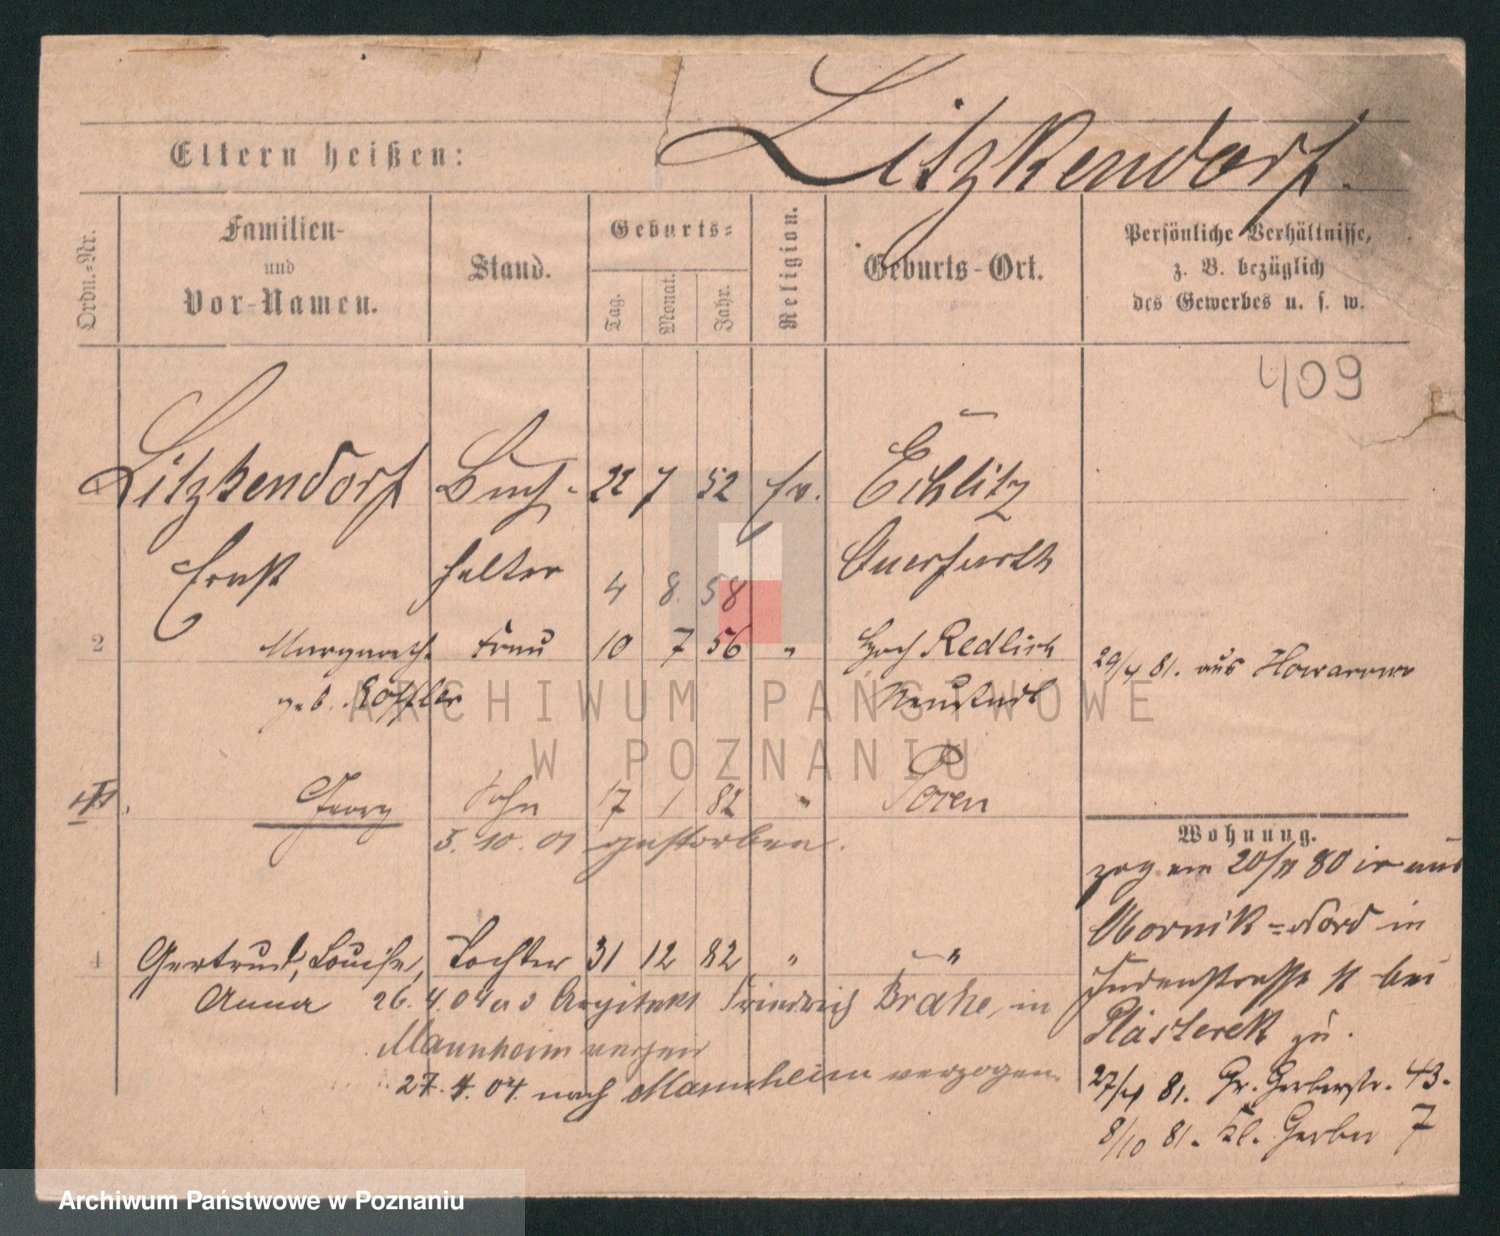 Litzkendorf.
Eltern heißen:
Ordn.=Nr.
Familien-
und
Vor-Namen.
Stand.
Geburts=
Tag.
Monat.
Jahr.
Religion.
Geburts-Ort.
Persönliche Verhältnisse,
z. B. bezüglich
des Gewerbes u. s. w.
409
Litzkendorf Buch- 22 7 52 ev. Eichlitz
Ernst halter Querfurth
4 8. 58
2 Margareth. Frau 10 7 56 " Redlich
geb. Neustadt
29/4 81. aus
ARCHIWUM PAŃSTWOWE
W POZNANIU
III. Georg Sohn 17 1 82 " Posen
5. 10. 01 gestorben.
4 Gertrud, Louise, Tochter 31 12 82 " "
Anna 26. 4. 04 Architekt Friedrich Brake, in
Mannheim
27. 4. 04 nach Mannheim verzogen.
Wohnung.
zog am 20/11 80 aus
in
Judenstrasse 11 bei
zu.
27/4 81. Gr. Gerberstr. 43.
8/10 81. Kl. Gerber 7
Archiwum Państwowe w Poznaniu